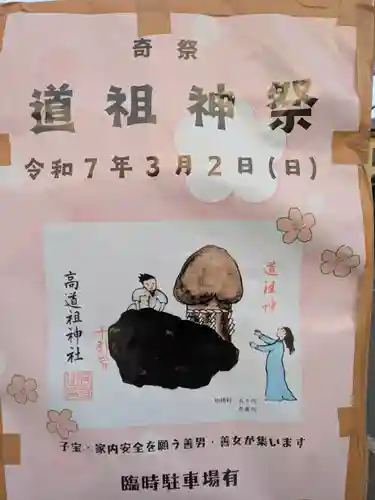 奇祭
道祖神祭
令和7年3月2日(日)
道祖神
高道祖神社
子宝・家内安全を願う善男・善女が集います
臨時駐車場有